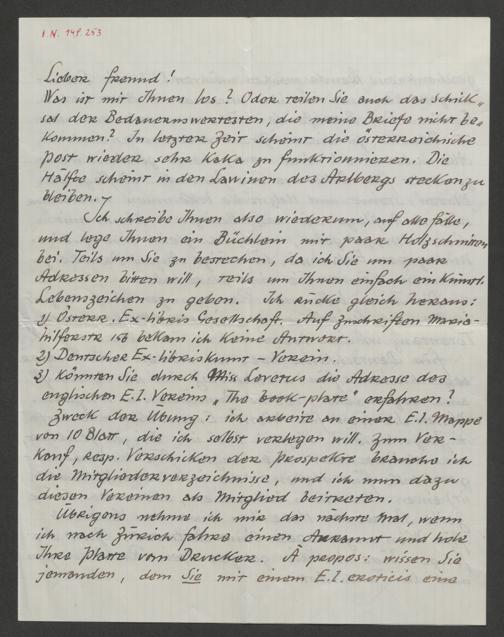 I.N. 149.253
Lieber Freund!
Was ist mit Ihnen los? Oder teilen Sie auch das Schick-
sal der Bedauernswertesten, die meine Briefe nicht be-
kommen? In letzter Zeit scheint die österreichische
Post wieder sehr KaKa zu funktionnieren. Die
Hälfte scheint in den Lavinen des Arlbergs stecken zu
bleiben.
Ich schreibe Ihnen also wiederum, auf alle Fälle,
und lege Ihnen ein Büchlein mit paar Holzschnitten
bei. Teils um Sie zu bestechen, da ich Sie um paar
Adressen bitten will, teils um Ihnen einfach ein künstl.
Lebenszeichen zu geben. Ich rücke gleich heraus:
1) Österr. Ex-libris Gesellschaft. Auf Zuschriften Maria-
hilferstr 158 bekam ich keine Antwort.
2) Deutscher Ex-libriskunst-Verein.
3) Könnten Sie durch Miss Levetus die Adresse des
englischen E.I. Vereins „The book-plate" erfahren?
Zweck der Übung: ich arbeite an einer E.I. Mappe
von 10 Blatt, die ich selbst verlegen will. Zum Ver-
kauf, resp. Verschicken der Prospekte brauche ich
die Mitgliederverzeichnisse, und ich muss dazu
diesen Vereinen als Mitglied beitreten.
Übrigens nehme ich mir das nächste Mal, wenn
ich nach Zürich fahre einen und hole
Ihre Platte vom Drucker. À propos: wissen Sie
jemanden, dem Sie mit einem E.I. eroticis eine